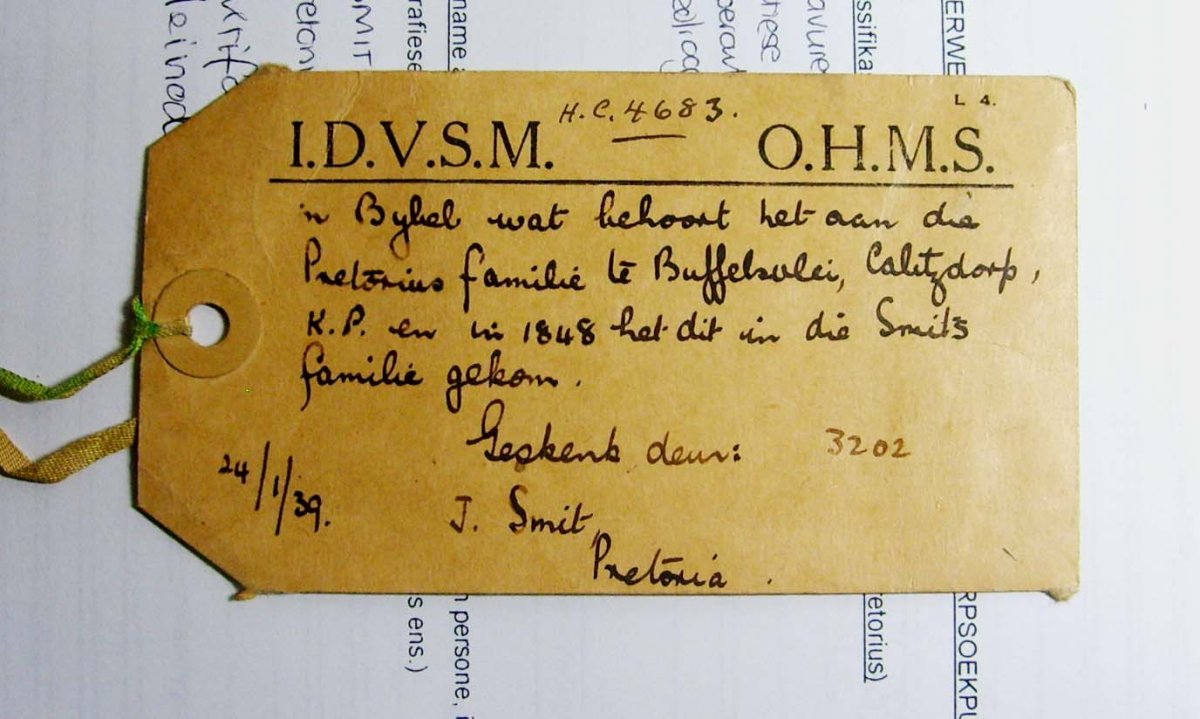 H.C. 4683.
L 4.
I.D.V.S.M. O.H.M.S.
'n Bybel wat behoort het aan die
Pretorius familie te Buffelsvlei, Calitzdorp,
K.P. en in 1848 het dit in die Smits
familie gekom.
Geskenk deur: 3202
24/1/39.
J. Smit,
Pretoria.
name
rafiese
SMIT
ssifika
ERWE
persone,
s ens.)
etorius)
RPSOEKPU